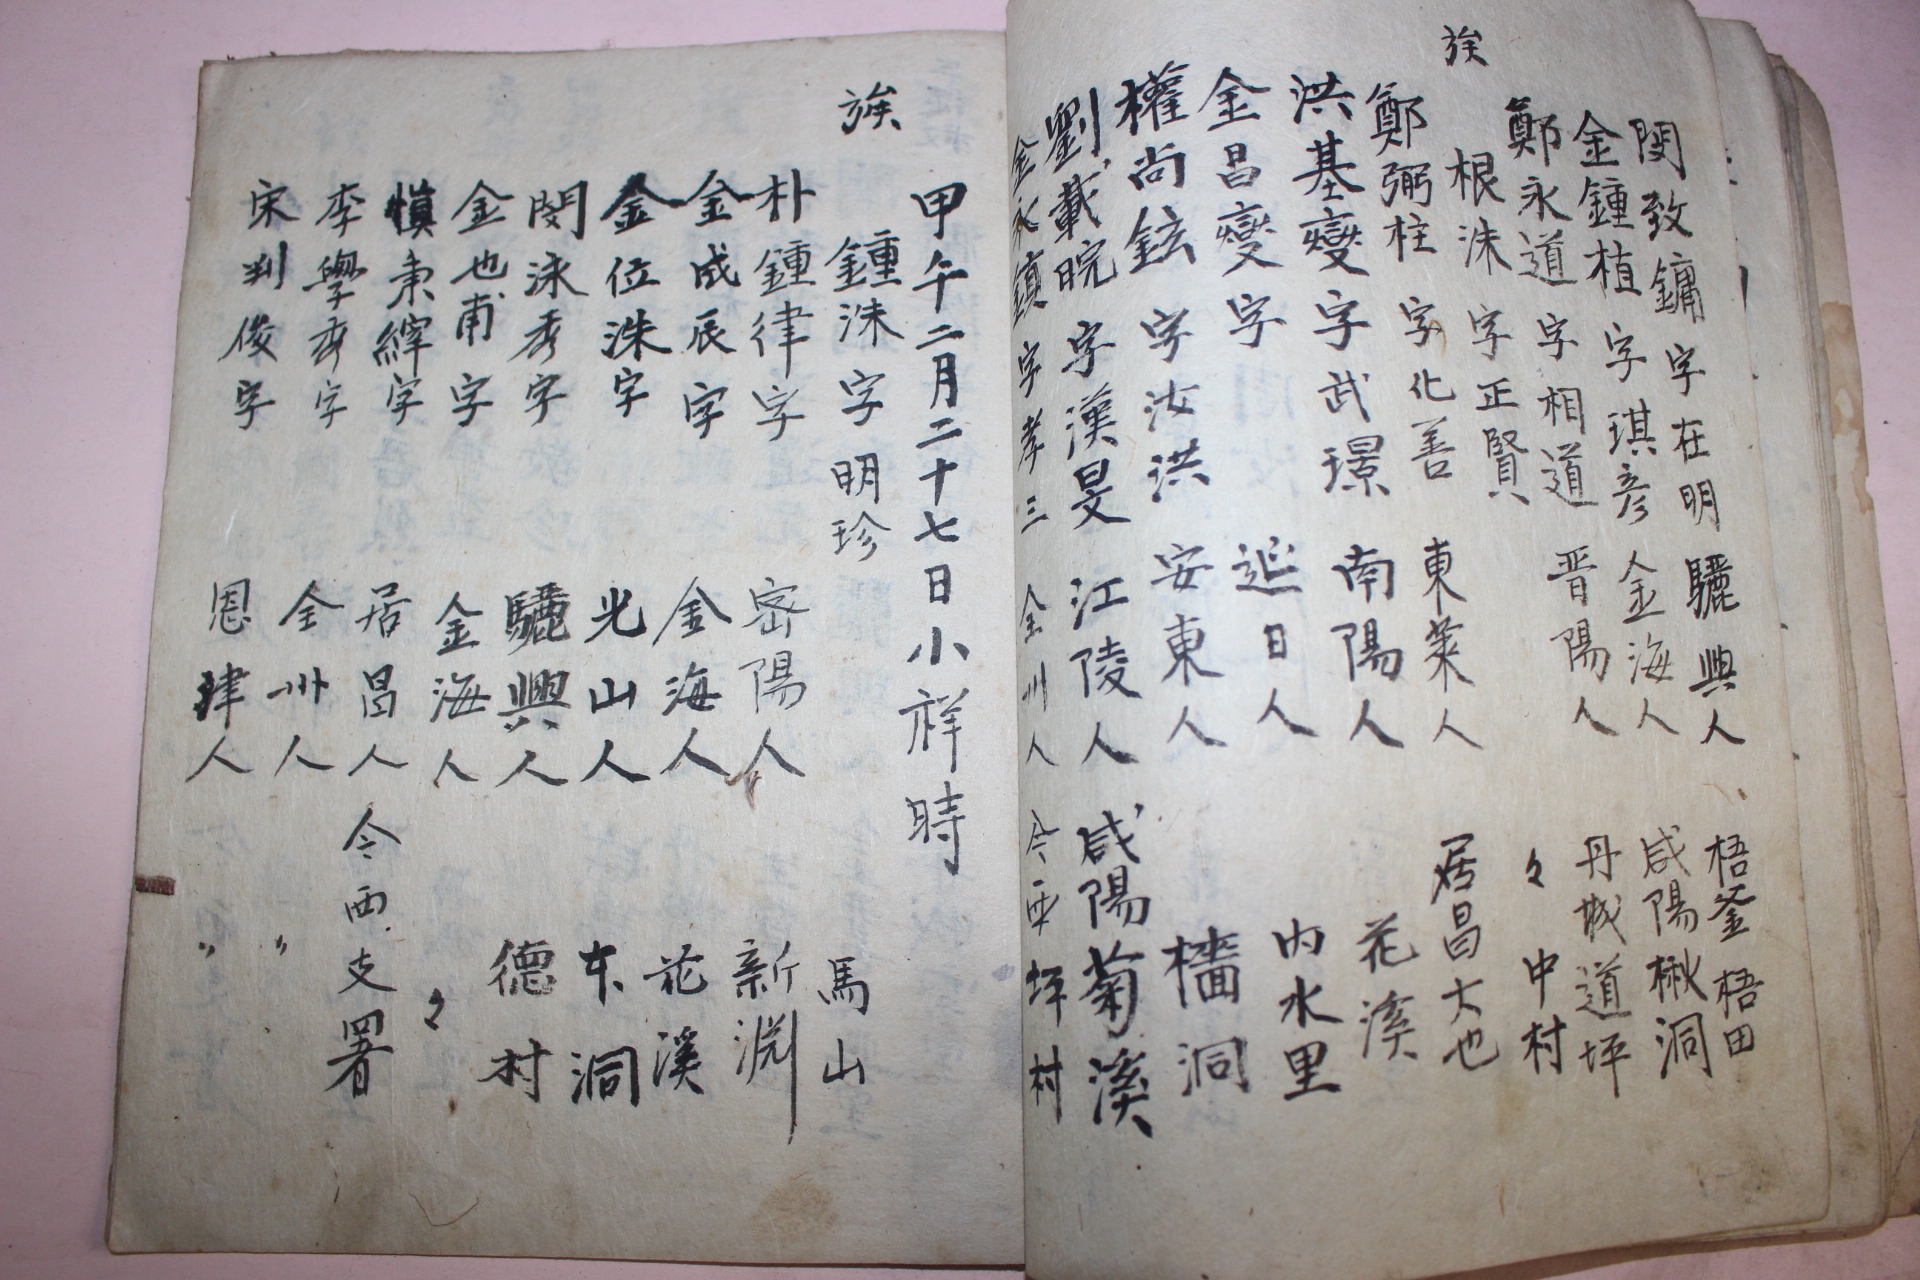 閔致鏞 字在明 驪興人 梧釜梧田
金鍾植 字琪彦 金海人 咸陽楸洞
鄭永道 字相道 晋陽人 丹城道坪
族 根洙 字正賢 〻 中村
鄭弼柱 字化善 東萊人 居昌大也
洪基燮 字武璟 南陽人 花溪
金昌燮 字 延日人 内水里
權尚鉉 字汝洪 安東人 檣洞
劉載晥 字漢旻 江陵人 咸陽菊溪
金永鎮 字孝三 全州人 今西坪村
甲午二月二十七日小祥時
族 鍾洙 字明珍 馬山
朴鍾律 字 密陽人 新淵
金成辰 字 金海人 花溪
金位洙 字 光山人 东洞
閔泳秀 字 驪興人 德村
金也甫 字 金海人 〻
愼秉縡 字 居昌人 今西支署
李學秀 字 全州人 〃
宋判俊 字 恩津人 〃